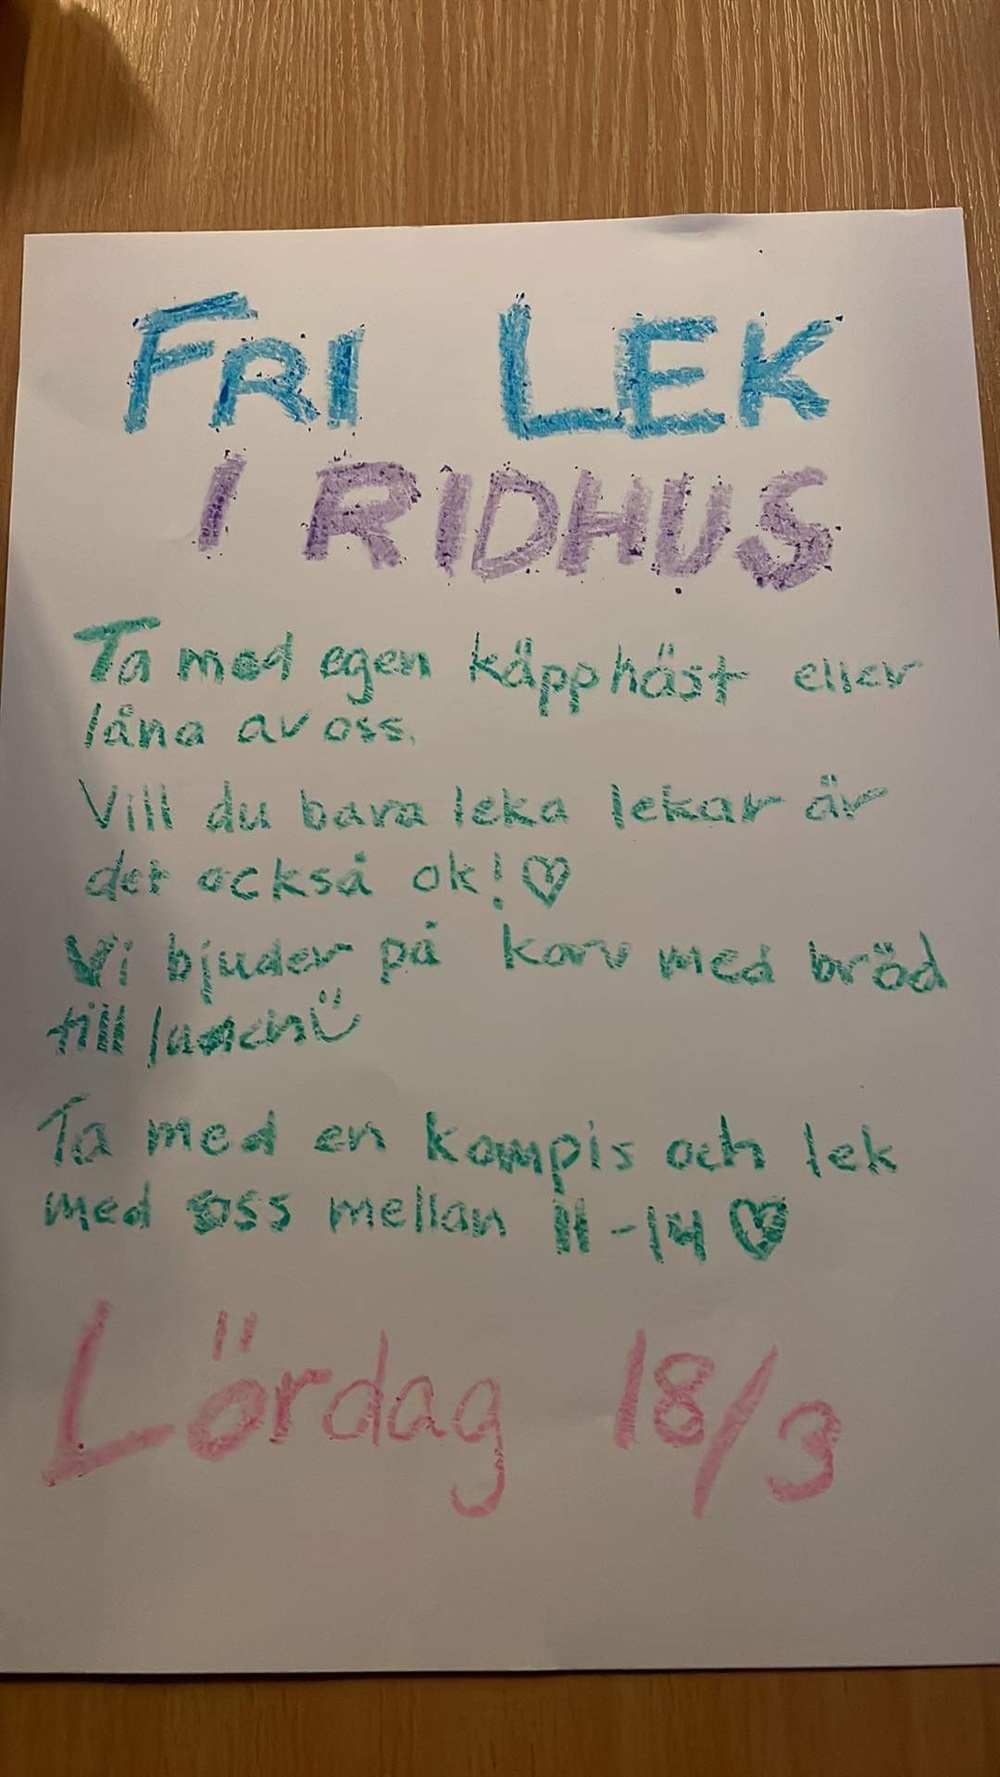 FRI LEK
I RIDHUS
Ta med egen käpphäst eller
låna av oss.
Vill du bara leka lekar är
det också ok! ♡
Vi bjuder på korv med bröd
till lunch ü
Ta med en kompis och lek
med oss mellan 11-14 ♡
Lördag 18/3